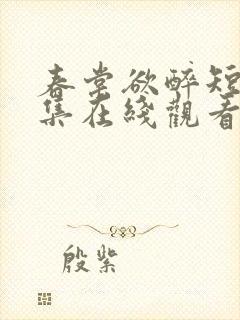 春堂欲醉短
集在綫觀看
殷紫